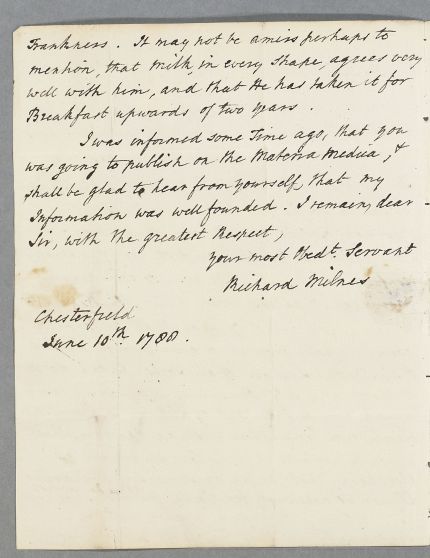 Frankness. It may not be amiss perhaps to
mention, that Milk, in every shape, agrees very
well with him, and that He has taken it for
Breakfast upwards of two years.
I was informed some Time ago, that you
was going to publish on the Materia Medica, &
shall be glad to hear from yourself, that my
Information was well founded. I remain, dear
Sir, with the greatest Respect,
your most Obedt. Servant
Richard Milnes
Chesterfield
June 10th. 1788.